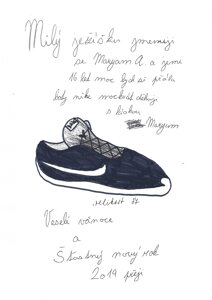 Milý ježíšku jmenuji
se Maryam A. a je mi
16 let moc bych si přála
boty nike mockrát děkuji
s láskou
Maryam
velikost 37
Veselé vánoce
a
Štastný nový rok
2019 přeji